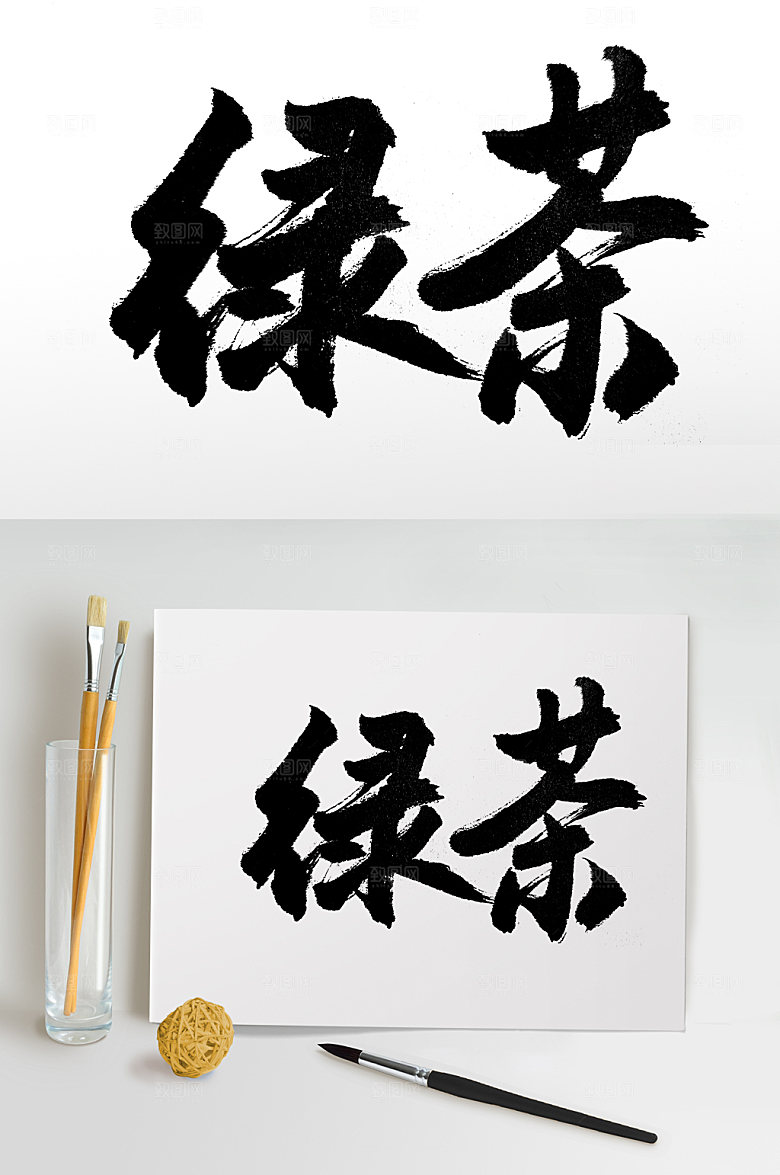 绿茶
绿茶